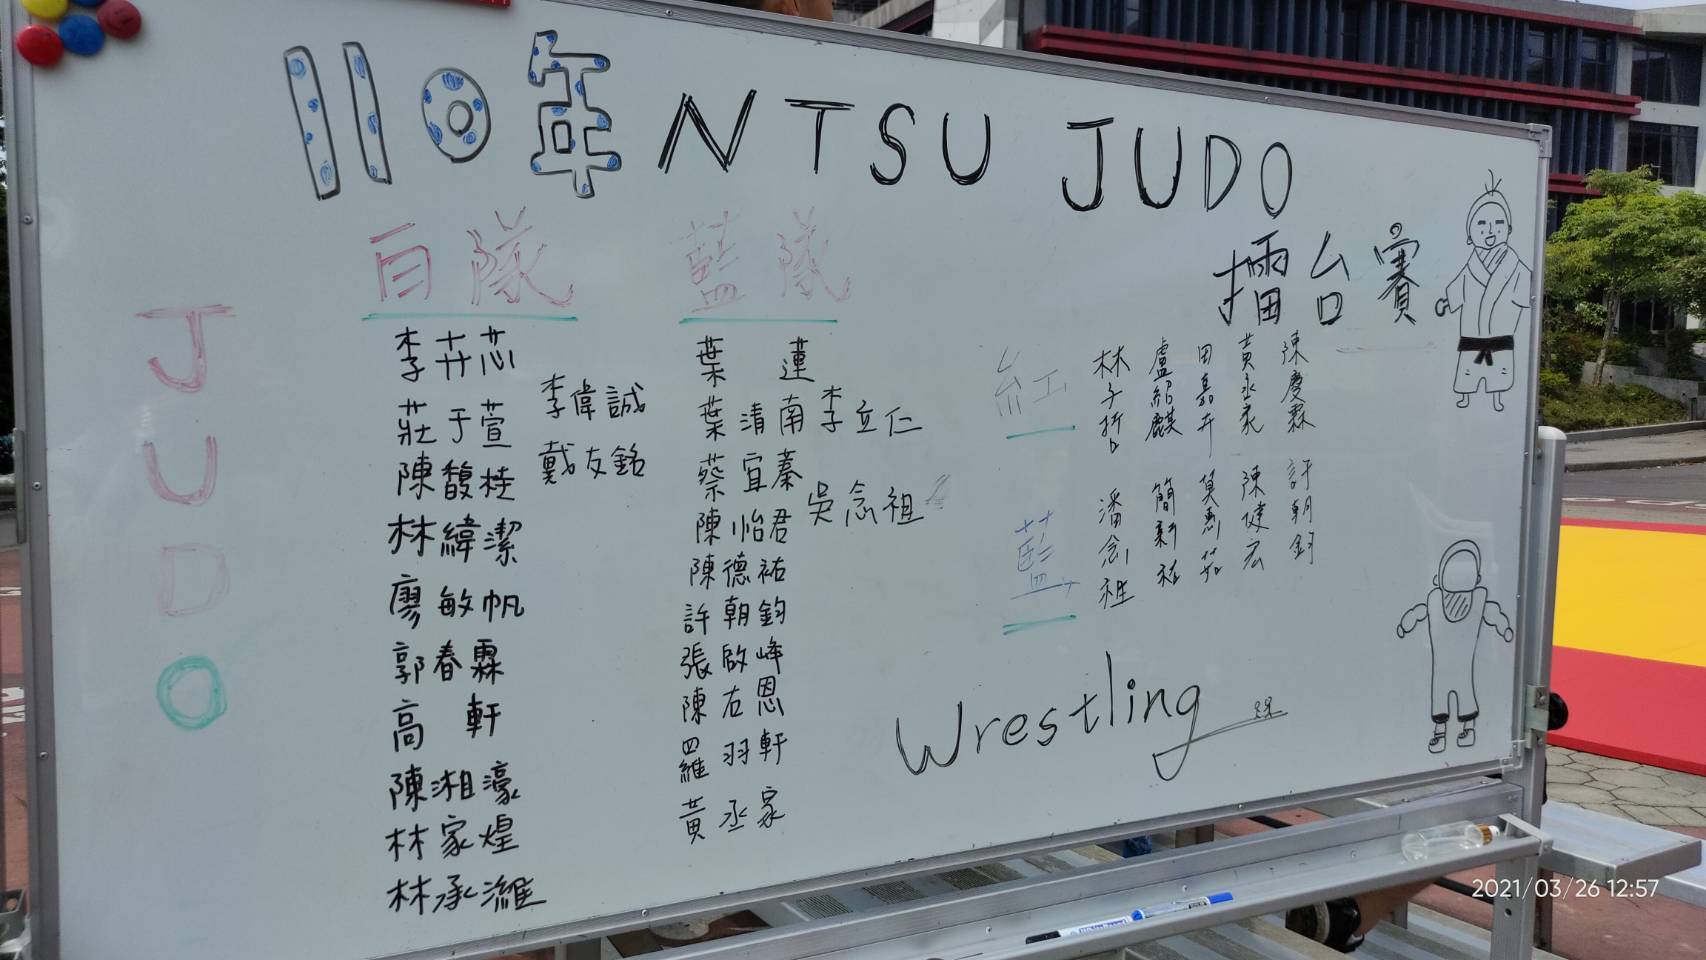 110年NTSU JUDO
擂台賽
JUDO
白隊
李卉芯
莊于萱
陳馥桂
林緯潔
廖敏帆
郭春霖
高軒
陳湘濠
林家煌
林承濰
李偉誠
戴友銘
藍隊
葉蓮
葉清南
蔡宜蓁
陳怡君
陳德祐
許朝鈞
張啟峰
陳右恩
羅羽軒
黃丞家
李立仁
吳念祖
紅
林子哲
盧紹麒
田嘉卉
黃丞家
陳慶霖
藍
潘念祖
簡新祐
莫惠茹
陳健宏
許朝鈞
Wrestling
2021/03/26 12:57